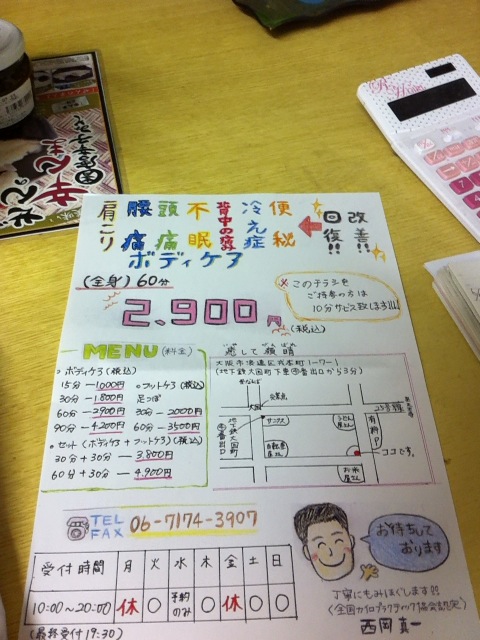 肩こり 腰痛 頭痛 不眠 背中の疲れ 冷え症 便秘
改善!! 回復!!
ボディケア
(全身) 60分
2.900円
(税込)
※このチラシを
ご持参の方は
10分サービス致します!!!
MENU (料金)
ボディケア(税込)
15分 — 1000円
30分 — 1.800円
60分 — 2900円
90分 — 4200円
フットケア(税込)
足つぼ
30分 — 2000円
60分 — 3500円
セット(ボディケア+フットケア)(税込)
30分+30分 — 3.800円
60分+30分 — 4.900円
癒して顔晴
(地下鉄大国町下車④番出口から3分)
至なんば
大国
サンクス
うどん屋さん
25号線
地下鉄大国町
④番出口
自転車屋さん
有料P
お米屋さん
ココです。
TEL
FAX
06-7174-3907
お待ちして
おります
受付時間 月 火 水 木 金 土 日
10:00~20:00 休 ○ 予約のみ ○ 休 ○ ○
(最終受付19:30)
丁寧にもみほぐします!!
(全国カイロプラクティック協会認定)
西岡 真一